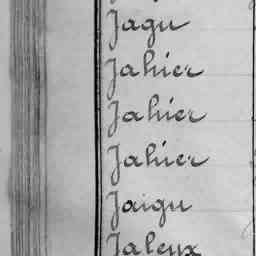 Jagu
Jahier
Jahier
Jahier
Jaigu
Jaleux